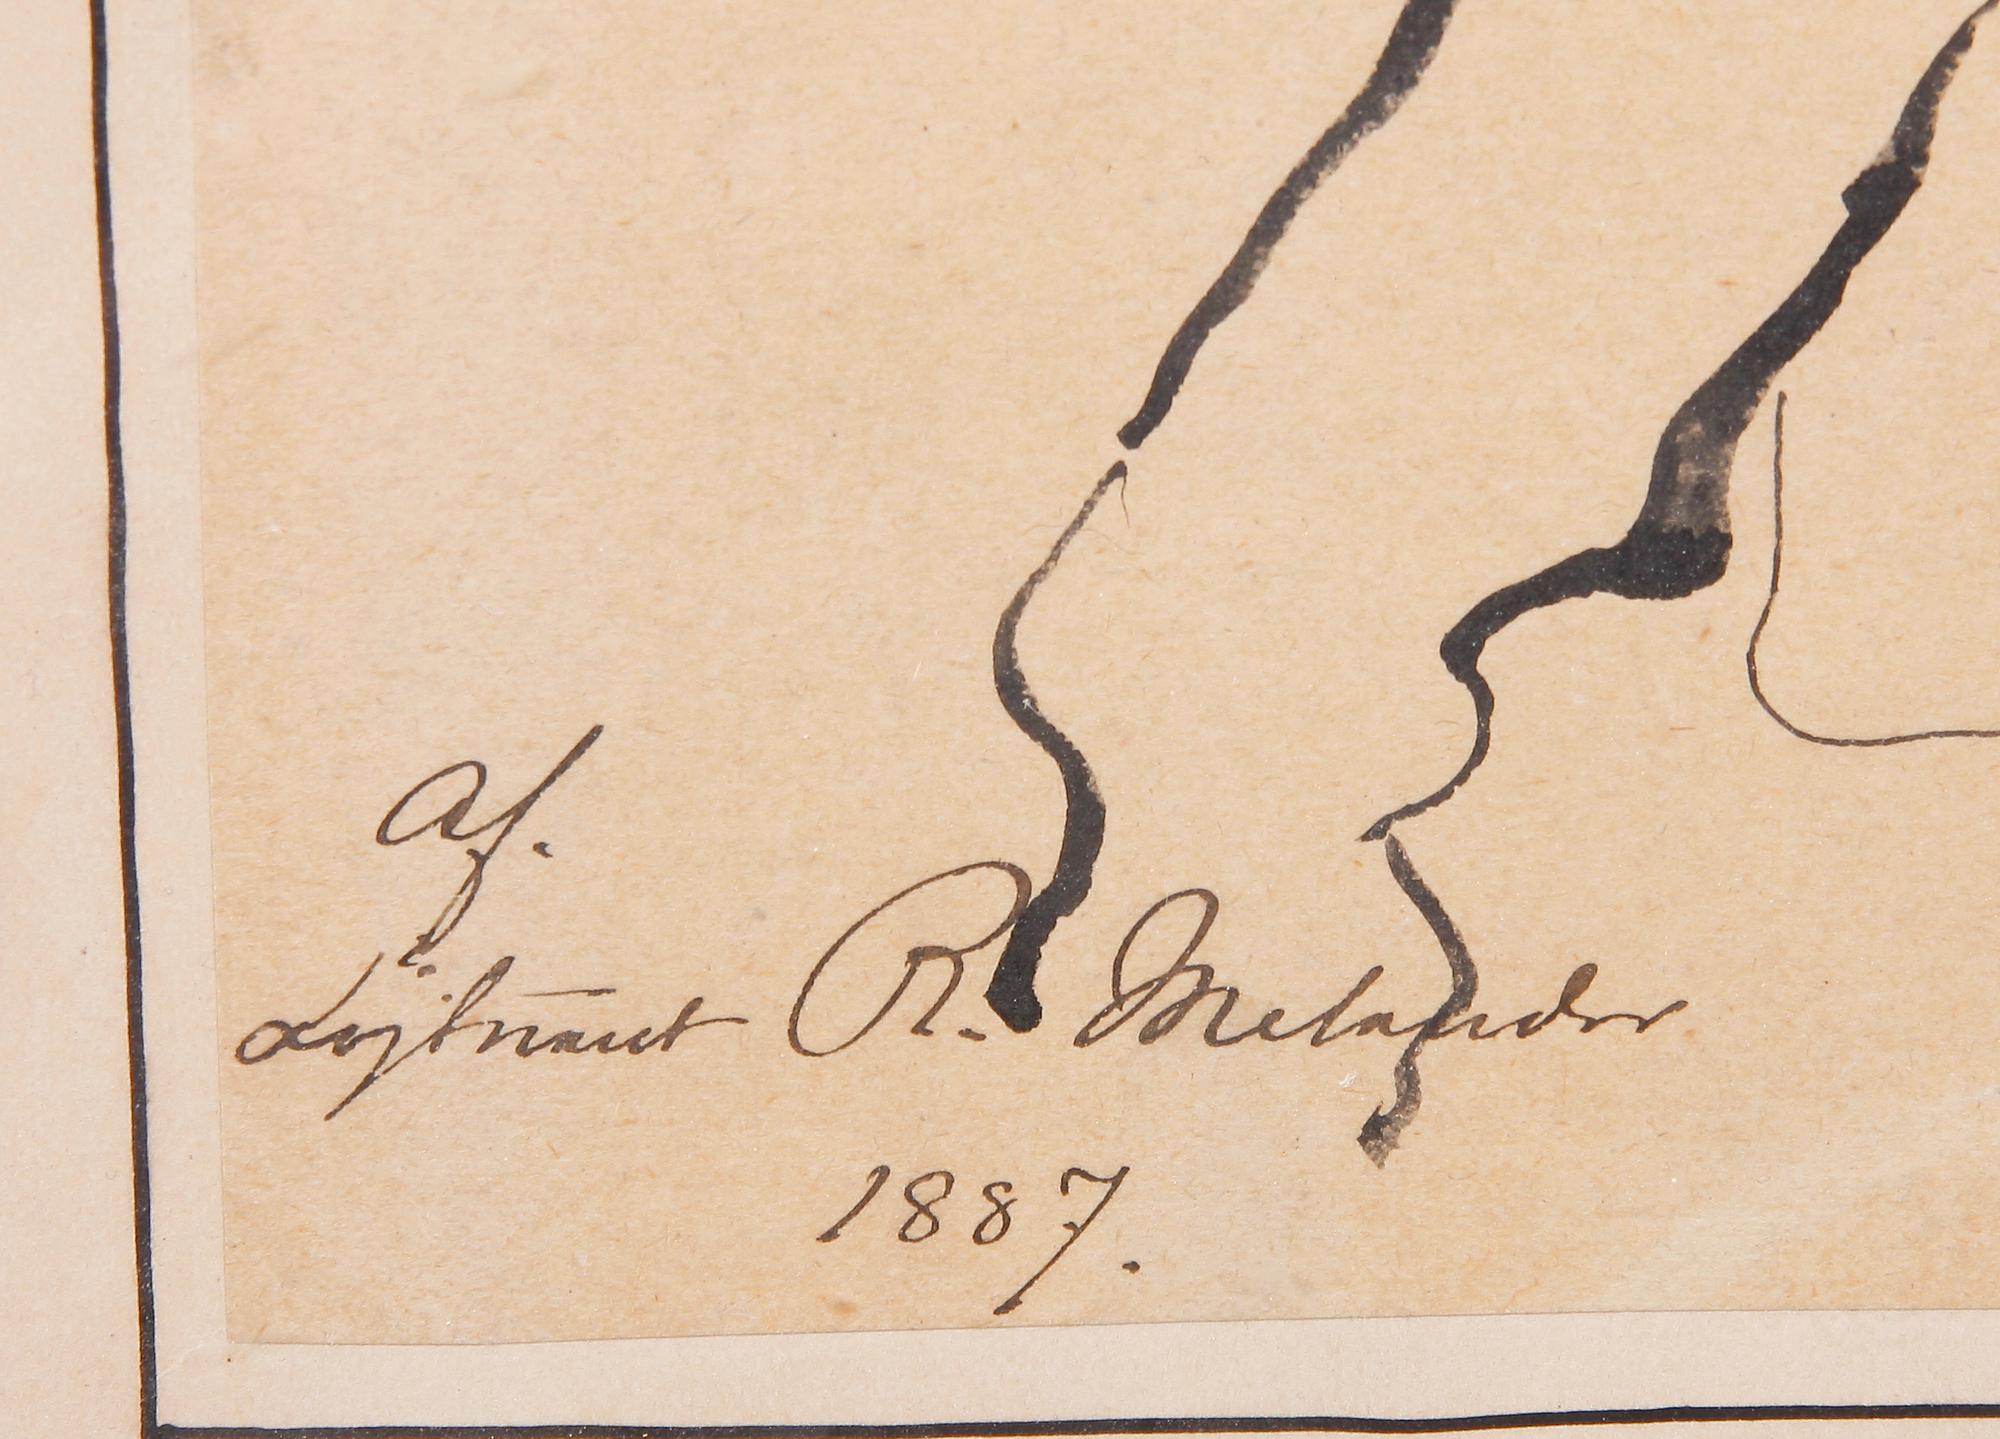 Af.
Löjtnant R. Melander
1887.